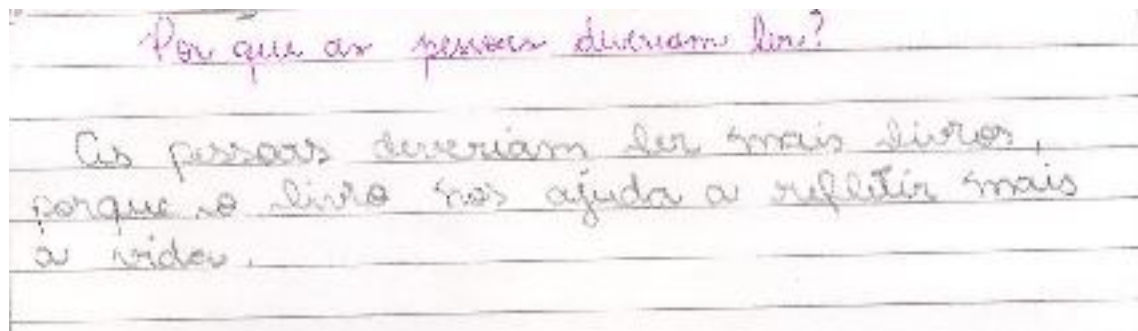 Por que as pessoas deveriam ler?
As pessoas deveriam ler mais livros,
porque o livro nos ajuda a refletir mais
a vida.